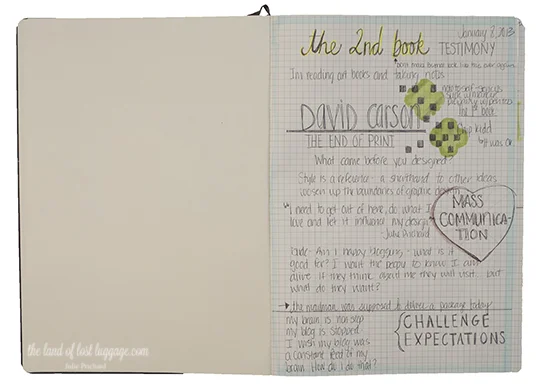 January 2, 2013
the 2nd book TESTIMONY
I'm reading art books and taking notes
the 1st book
David Carson
chip kidd
THE END OF PRINT
it was ok
What came before you designed?
Style is a reference - a shorthand to other ideas
loosen up the boundaries of graphic design
"I need to get out of here, do what I
love and let it influence my design"
- Julie Prichard
MASS
COMMUNICA-
TION
Am I happy blogging - what is it
good for? I want the people to know I am
alive if they think about me they will visit... but
what do they want?
the mailman was supposed to deliver a package today
my brain is non stop
my blog is stopped
I wish my blog was
a constant feed of my
brain. How do I do that?
CHALLENGE
EXPECTATIONS
the land of lost luggage.com
Julie Prichard